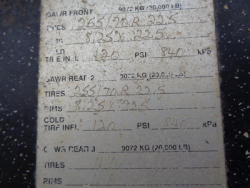 GAWR FRONT 9072 KG (20,000 LB)
TIRES 255/70R 22.5
RIMS 8.25X22.5
COLD
TIRE INFL 120 PSI 840 kPS
GAWR REAR-2 9072 KG (20,000 LB)
TIRES 255/70R 22.5
RIMS 8.25X22.5
COLD
TIRE INFL 120 PSI 840 kPa
GAWR REAR-3 9072 KG (20,000 LB)
TIRES
RIMS